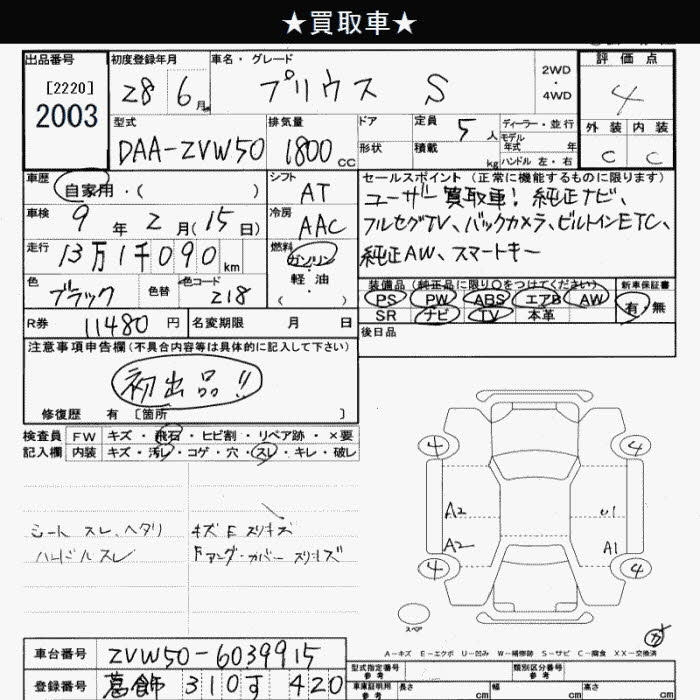 ★買取車★
出品番号
[2220]
2003
初度登録年月
28 6月
車名・グレード
プリウス S
2WD
・
4WD
評価点
4
外装 内装
C C
型式
DAA-ZVW50
排気量
1800 CC
ドア
形状
定員 5人
積載 kg
ディーラー・並行
モデル
年式 年
ハンドル 左・右
車歴
自家用・( )
シフト
AT
車検
9年2月(15日)
冷房
AAC
走行
13万1千090km
燃料
ガソリン
・
軽油
( )
色
ブラック
色替
色コード
218
セールスポイント(正常に機能するものに限ります)
ユーザー買取車!純正ナビ、
フルセグTV、バックカメラ、ビルトインETC、
純正AW、スマートキー
装備品(純正品に限り○をつけてください)
PS PW ABS エアB AW
SR ナビ TV 本革
新車保証書
有・無
R券 11480円
名変期限 月 日
後日品
注意事項申告欄(不具合内容等は具体的に記入して下さい)
初出品!!
修復歴 有〔箇所 〕
検査員
記入欄
FW キズ・飛石・ヒビ割・リペア跡・×要
内装 キズ・汚レ・コゲ・穴・スレ・キレ・破レ
シート スレ、ヘタリ
ハンドルスレ
キズE スリキズ
Fアンダーカバー スリキズ
4 4
A2 U1
A2 A1
4 4
スペア
A-キズ E-エクボ U-凹み W-補修跡 S-サビ C-腐食 XX-交換済
車台番号
ZVW50-6039915
登録番号
葛飾 310す 420
型式指定番号
参考
類別区分番号
参考
車庫証明用
参考
長さ cm
幅 cm
高さ cm